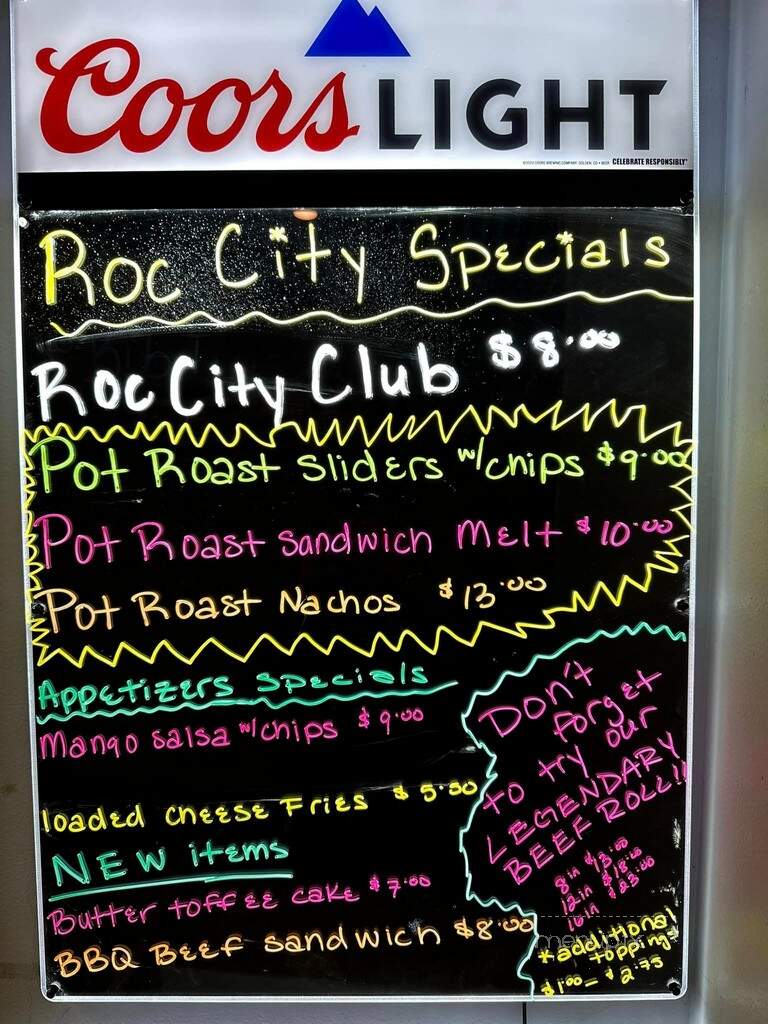 Coors LIGHT
CELEBRATE RESPONSIBLY®
Roc City Specials
Roc City Club $8.00
Pot Roast Sliders w/chips $9.00
Pot Roast Sandwich Melt $10.00
Pot Roast Nachos $13.00
Appetizers Specials
Mango Salsa w/chips $9.00
loaded cheese Fries $5.00
NEW items
Butter toffee cake $7.00
BBQ Beef sandwich $8.00
Don't
forget
to try our
LEGENDARY
BEEF ROLL!!
8in $13.00
12in $18.00
16in $23.00
*additional
topping*
$1.00 - $2.75